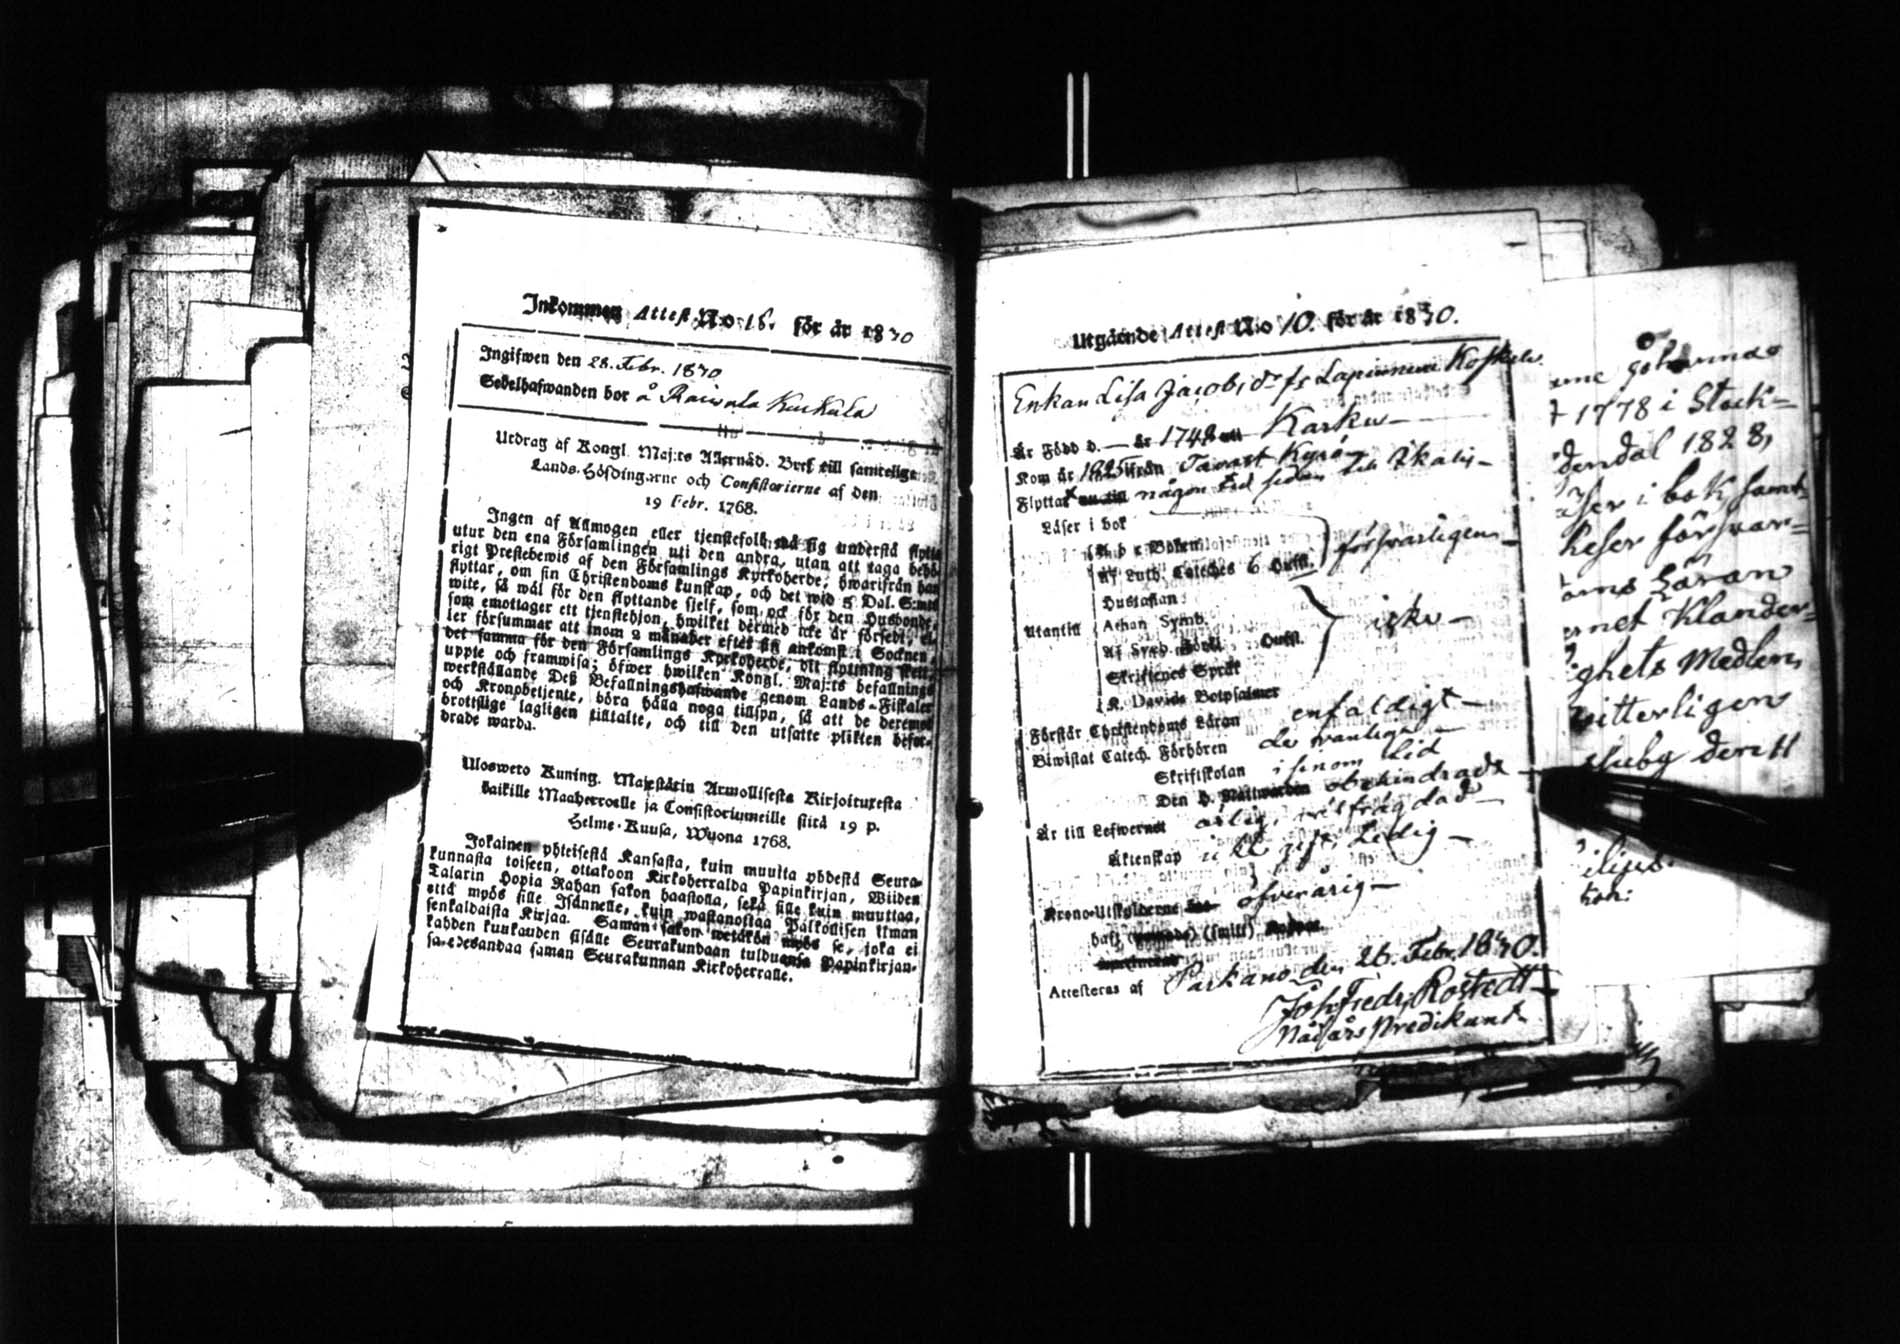 Inkommen Attest N:o 16. för år 1830
Ingifwen den 28. Febr. 1830
Sedelhafwanden bor å Raiwala Kuckula
Utdrag af Kongl. Maj:ts Allernåd. Bref till samtelige
Lands-Höfdingarne och Consistorierne af den
19 Febr. 1768.
Ingen af Allmogen eller tjenstefolk må sig understå flytta
utur den ena Församlingen uti den andra, utan att taga behö-
rigt Prestebewis af den Församlings Kyrkoherde, hwarifrån han
flyttar, om sin Christendoms kunskap, och det wid 5 Dal. S:mts
wite, så wäl för den flyttande sjelf, som ock för den Husbonde,
som emottager ett tjenstehjon, hwilket dermed icke är försedt, el-
ler försummar att inom 2 månader efter sin ankomst i Socknen,
det samma för den Församlings Kyrkoherde, dit flyttning skett,
uppte och framwisa; öfwer hwilken Kongl. Maj:ts befallnings
werkställande Deß Befallningshafwande genom Lands-Fiskaler
och Kronobetjente, böra hålla noga tillsyn, så att de deremot
brottslige lagligen tilltalte, och till den utsatte plikten befor-
drade warda.
Ulosweto Kuning. Majestätin Armollisesta Kirjoituxesta
kaikille Maaherroille ja Consistoriumeille siitä 19 p.
Helme-Kuusa, Wuona 1768.
Jokainen yhteisestä Kansasta, kuin muutta yhdestä Seura-
kunnasta toiseen, ottakoon Kirkoherralda Papinkirjan, Wiiden
Talarin Hopia Rahan sakon haastolla, sekä sille kuin muuttaa,
että myös sille Isännelle, kuin wastanottaa Palkollisen ilman
senkaldaista Kirjaa. Saman sakon wetäkön myös se, joka ei
kahden kuukauden sisälle Seurakundaan tulduansa Papinkirjan-
sa edesandaa saman Seurakunnan Kirkoherralle.
Utgående Attest N:o 10. för år 1830.
Enkan Lisa Jacobs dr fr Lapinneva Koskela
Är Född d. — år 1748 uti Karku —
Kom år 1825 ifrån Tavast Kyrö
Flyttar någon tid sedan till Ikalis —
Läser i bok
A. b. c. Boken
Af Luth. Cateches 6 Hufst. försvarligen —
Hustaflan
Utantill Athan Symb. icke —
Af Sveb. Hufst.
Skriftenes Språk
K. Davids Botpsalmer
Förstår Christendoms Läran enfaldigt —
Biwistat Catech. Förhören de vanliga —
Skriftskolan i sinom tid
Den H. Nattwarden obehindrad —
Är till Lefwernet ärlig, välfrägdad —
Äktenskap icke gift, Ledig —
Krono-Utskylderne öfverårig —
haft (smitt)
Attesteras af Parkano den 26. Febr. 1830.
Joh. Fredr. Rostedt
Nådårs Predikant
Johannes
1778 i Stock=
dendal 1828,
i bok samt
försvar=
Läran
Klander=
ighets Medlem,